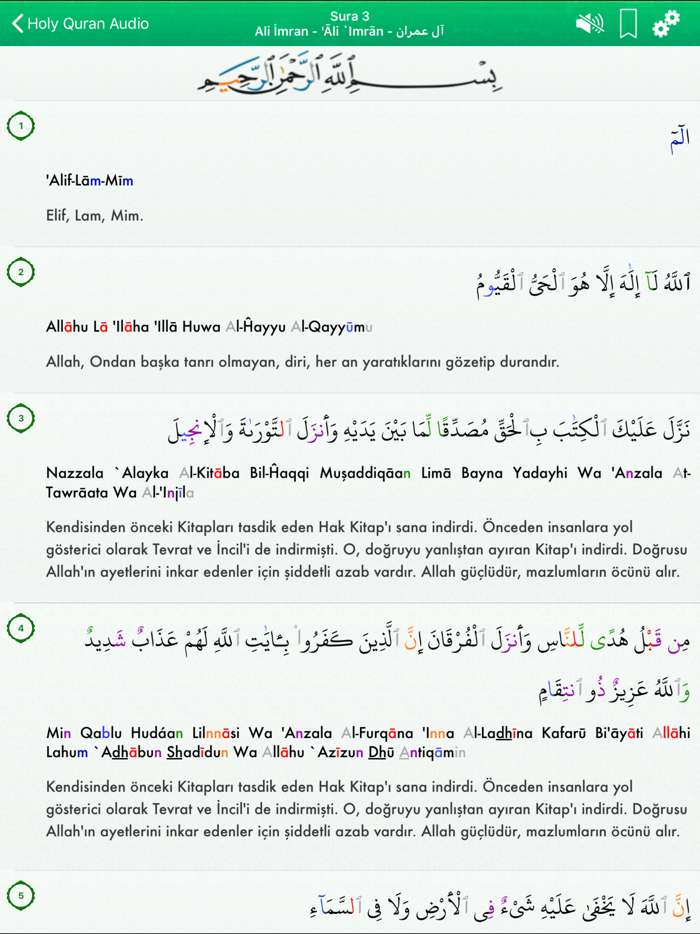 Holy Quran Audio
Sura 3
Ali İmran - 'Āli `Imrān - آل عمران
بِسْمِ ٱللَّهِ ٱلرَّحْمَٰنِ ٱلرَّحِيمِ
1
الٓمٓ
'Alif-Lām-Mīm
Elif, Lam, Mim.
2
ٱللَّهُ لَآ إِلَٰهَ إِلَّا هُوَ ٱلْحَىُّ ٱلْقَيُّومُ
Allāhu Lā 'Ilāha 'Illā Huwa Al-Ĥayyu Al-Qayyūmu
Allah, Ondan başka tanrı olmayan, diri, her an yaratıklarını gözetip durandır.
3
نَزَّلَ عَلَيْكَ ٱلْكِتَٰبَ بِٱلْحَقِّ مُصَدِّقًا لِّمَا بَيْنَ يَدَيْهِ وَأَنزَلَ ٱلتَّوْرَىٰةَ وَٱلْإِنجِيلَ
Nazzala `Alayka Al-Kitāba Bil-Ĥaqqi Muşaddiqāan Limā Bayna Yadayhi Wa 'Anzala At-
Tawrāata Wa Al-'Injīla
Kendisinden önceki Kitapları tasdik eden Hak Kitap'ı sana indirdi. Önceden insanlara yol
gösterici olarak Tevrat ve İncil'i de indirmişti. O, doğruyu yanlıştan ayıran Kitap'ı indirdi. Doğrusu
Allah'ın ayetlerini inkar edenler için şiddetli azab vardır. Allah güçlüdür, mazlumların öcünü alır.
4
مِن قَبْلُ هُدًى لِّلنَّاسِ وَأَنزَلَ ٱلْفُرْقَانَ إِنَّ ٱلَّذِينَ كَفَرُوا۟ بِـَٔايَٰتِ ٱللَّهِ لَهُمْ عَذَابٌ شَدِيدٌ
وَٱللَّهُ عَزِيزٌ ذُو ٱنتِقَامٍ
Min Qablu Hudáan Lilnnāsi Wa 'Anzala Al-Furqāna 'Inna Al-Ladhīna Kafarū Bi'āyāti Allāhi
Lahum `Adhābun Shadīdun Wa Allāhu `Azīzun Dhū Antiqāmin
Kendisinden önceki Kitapları tasdik eden Hak Kitap'ı sana indirdi. Önceden insanlara yol
gösterici olarak Tevrat ve İncil'i de indirmişti. O, doğruyu yanlıştan ayıran Kitap'ı indirdi. Doğrusu
Allah'ın ayetlerini inkar edenler için şiddetli azab vardır. Allah güçlüdür, mazlumların öcünü alır.
5
إِنَّ ٱللَّهَ لَا يَخْفَىٰ عَلَيْهِ شَىْءٌ فِى ٱلْأَرْضِ وَلَا فِى ٱلسَّمَآءِ